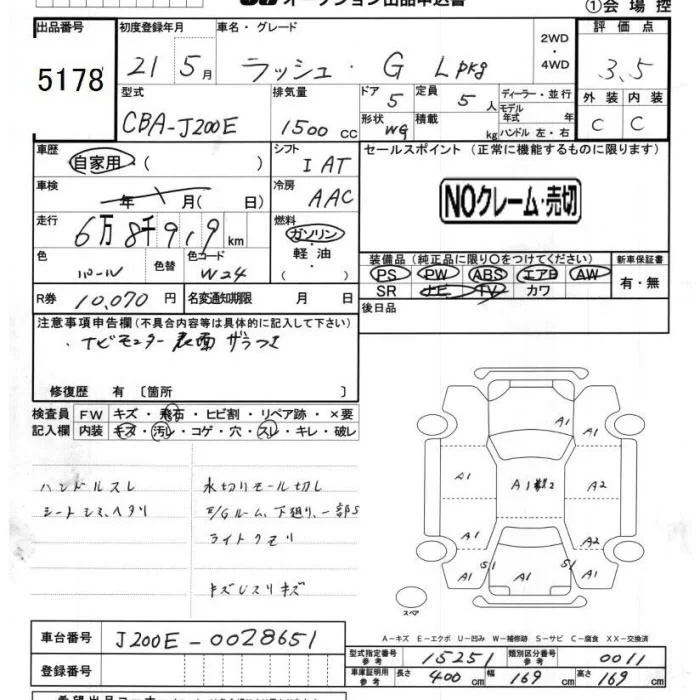 オークション出品申込書
①会場控
出品番号 初度登録年月 車名・グレード 2WD・4WD 評価点
5178 21 5月 ラッシュ・G Lpkg 3.5
型式 排気量 ドア 5 定員 5人 ディーラー・並行 外装 内装
CBA-J200E 1500cc 形状 WG 積載 kg モデル年式 年 ハンドル 左・右 C C
車歴 自家用 ( ) シフト IAT セールスポイント (正常に機能するものに限ります)
車検 年 月( 日) 冷房 AAC NOクレーム・売切
走行 6万8千919km 燃料 ガソリン・軽油・( )
色 パール 色替 色コード W24 装備品 (純正品に限り○をつけてください) 新車保証書
PS PW ABS エアB AW 有・無
SR ナビ TV カワ
R券 10,070円 名変通知期限 月 日 後日品
注意事項申告欄(不具合内容等は具体的に記入して下さい)
・ナビモニター表面ザラつき
修復歴 有〔箇所 〕
検査員 FW キズ・飛石・ヒビ割・リペア跡・×要
記入欄 内装 キズ・汚レ・コゲ・穴・スレ・キレ・破レ
ハンドルスレ 水切りモール切し
シートシミ、ヘタリ E/Gルーム、下廻り、一部S
ライトクモリ
キズヒスリキズ
A1
A1 A1 A2
A1 A2
S1 S1
A1 A1 A1
スペア
A-キズ E-エクボ U-凹み W-補修跡 S-サビ C-腐食 XX-交換済
車台番号 J200E-0028651
登録番号
型式指定番号 参考 15251 類別区分番号 参考 0011
車庫証明用 参考 長さ 400cm 幅 169cm 高さ 169cm
希望出品コーナー